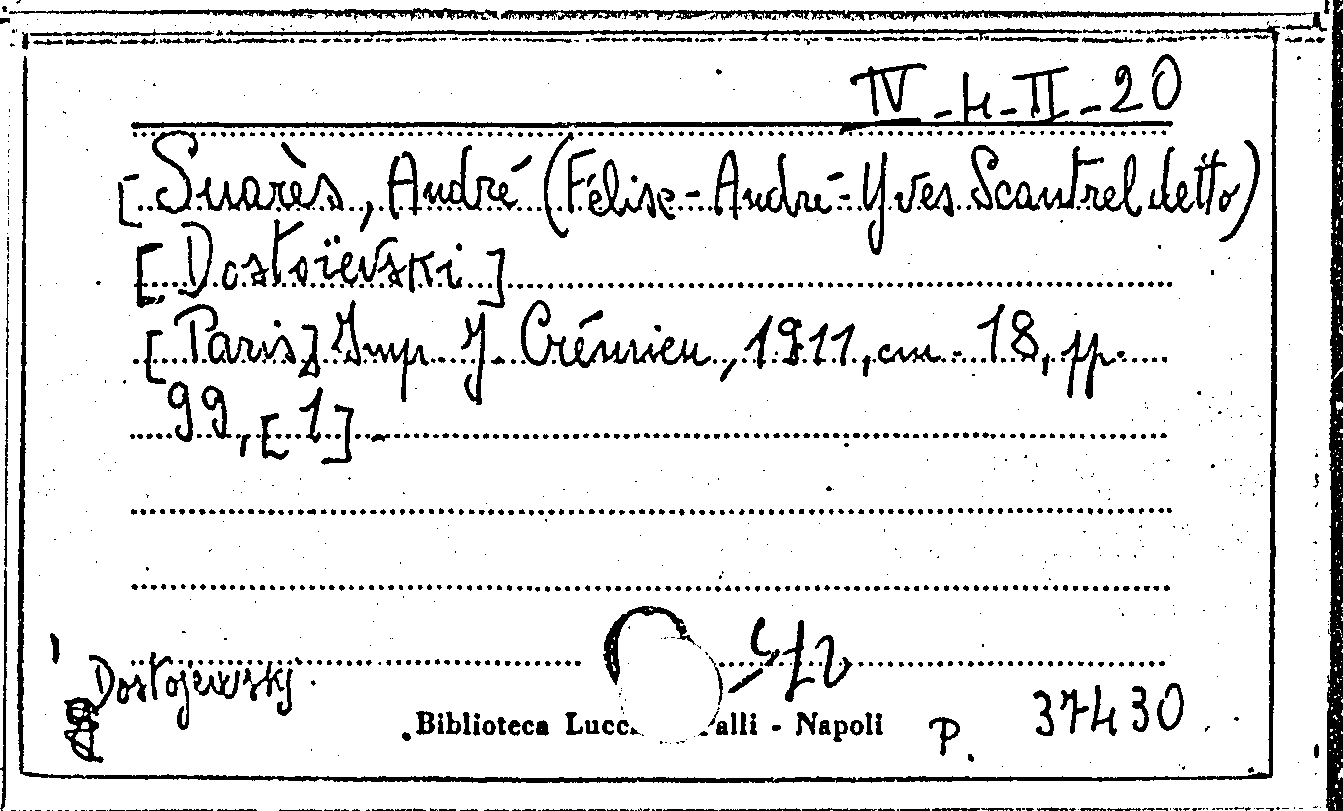 IV-4-II-20
[Suarès, André (Félix-André-Yves Scantrel detto)
[Dostoïevski]
[Paris] Imp. J. Crémieu, 1911, cm. 18, pp.
99, [1].-
Dostojewskj.
Biblioteca Lucc alli - Napoli P. 37430